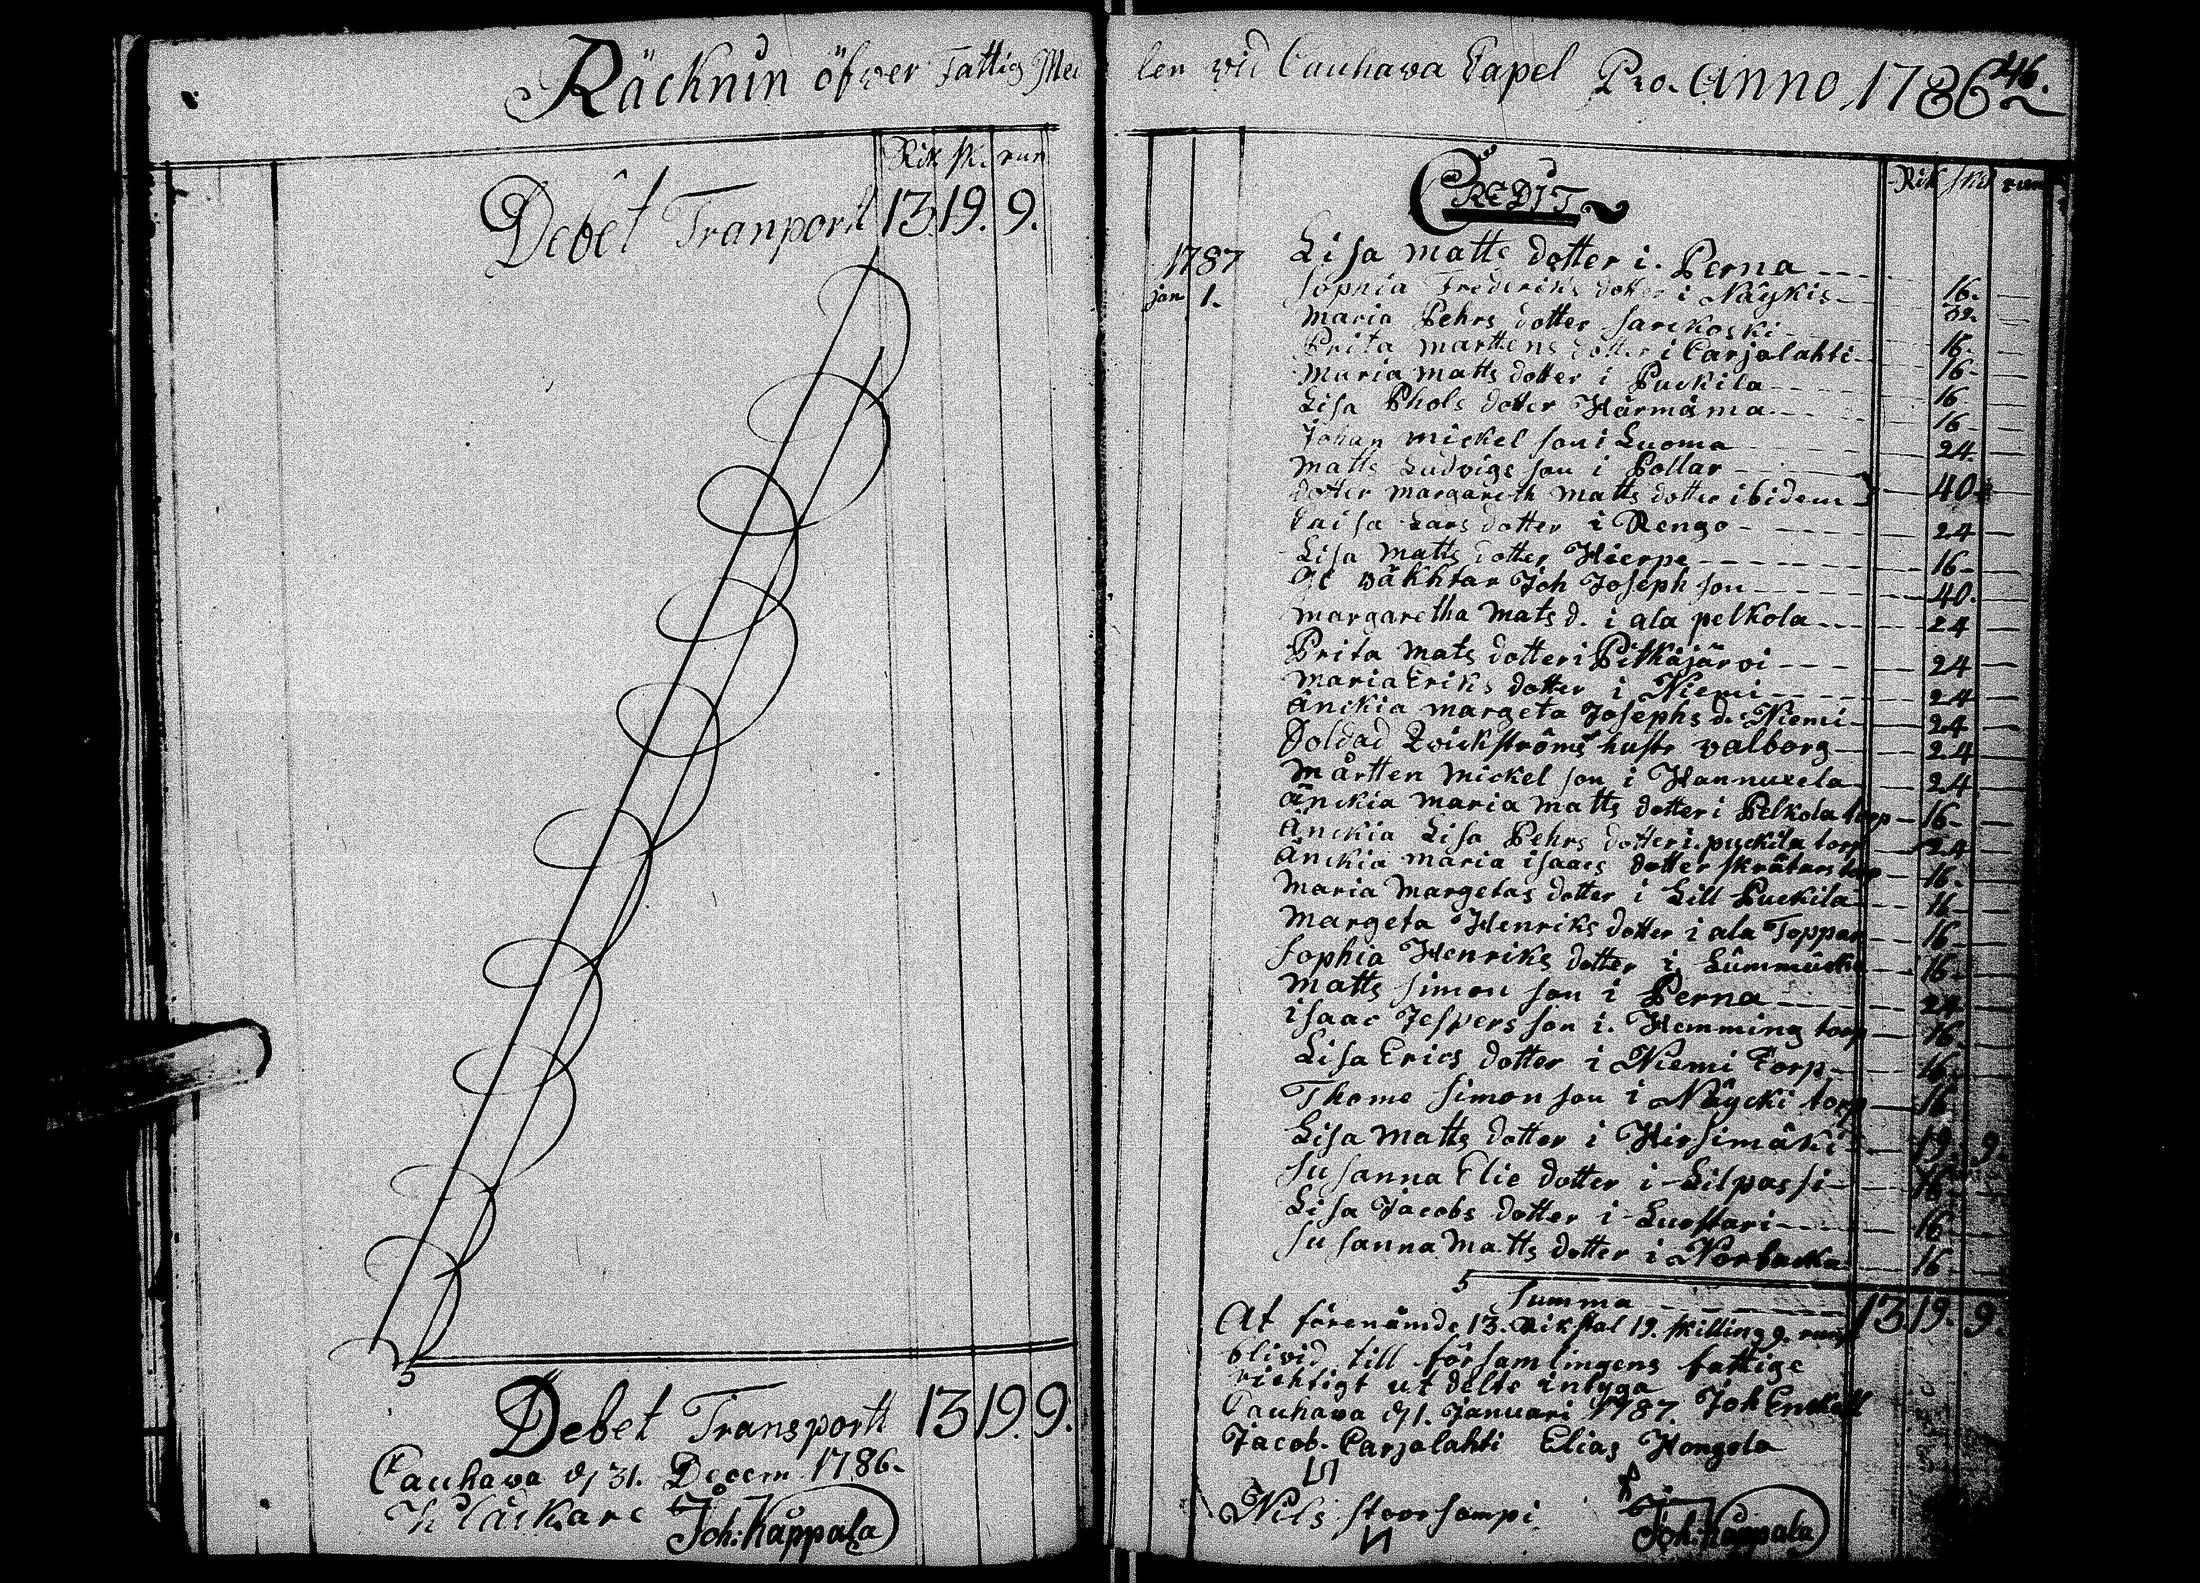 Räcknin öfver Fattig Med
Rik sk. run
Debet Tranportt 13. 19. 9.
Debet Transportt 13 19. 9.
Cauhava d 31. Decem 1786.
Kläckare Joh: Kåppala
len vid Cauhava Capel Pro. Anno 1786 46.
CREDIT Rik sk run
1787 Lisa matts dotter i. Perna
jan 1. Sophia Frederiks dotter i Näykis 16.
maria Pehrs dotter Sarckoski
Prita marttens dotter i Carjalahti 16
maria matts dotter i Puckila 16
Lisa Phols dotter Härmämä 16
Johan mickel son i Luoma 24.
matts Ludvigs son i Pollar
dotter margareth matts dotter ibidem 40
Caisa Lars dotter i Rengo 24
Lisa matts dotter Hierpe 16
väkhtar Joh Joseph son 40.
margaretha mats d. i ala pelkola 24
Prita mats dotter i Pitkäjärvi 24
maria Eriks dotter i Niemi 24
Änckia margeta Josephs d. Niemi 24
Soldad Qvickströms hustr valborg 24
mårtten mickel son i Hannuxela 24
änckia maria matts dotter i Pelkola torp 16
Änckia Lisa Pehrs dotter i. puckila torp 24
Änckia maria isaacs dotter skrätars torp 16.
maria margetas dotter i Lill Puckila 16
margeta Henriks dotter i ala Toppar 16
Sophia Henriks dotter i Lummucka 16
matts simon son i Perna 24
isaac Jespers son i. Hemming torp 16
Lisa Erics dotter i Niemi Torp 16
Thome simon son i Näycki torp 16
Lisa matts dotter i Hirsimäki 19. 9.
susanna Elie dotter i Lilpassi 16
Lisa Jacobs dotter i Luostari 16
susanna matts dotter i Norbacka 16
Summa 13 19. 9.
At förenämde 13. Rikstal 19. skilling 9. runs
blivid till församlingens fattige
richtigt ut delte intyga
Cauhava d 1. Januari 1787. Joh Enckell
Jacob. Carjalahti Elias Hongola
Nils storsampi
Joh: Kåppala